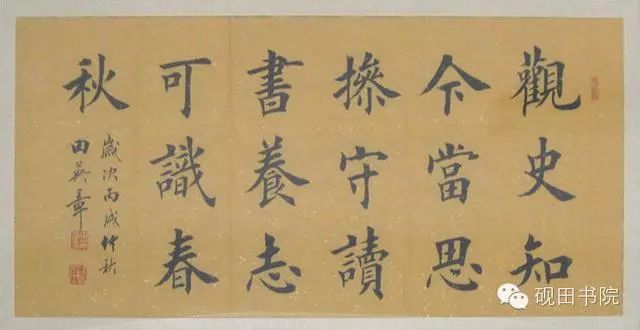 觀史知
今當思
操守讀
書養志
可識春
秋
歲次丙戌仲秋
田英章
砚田书院